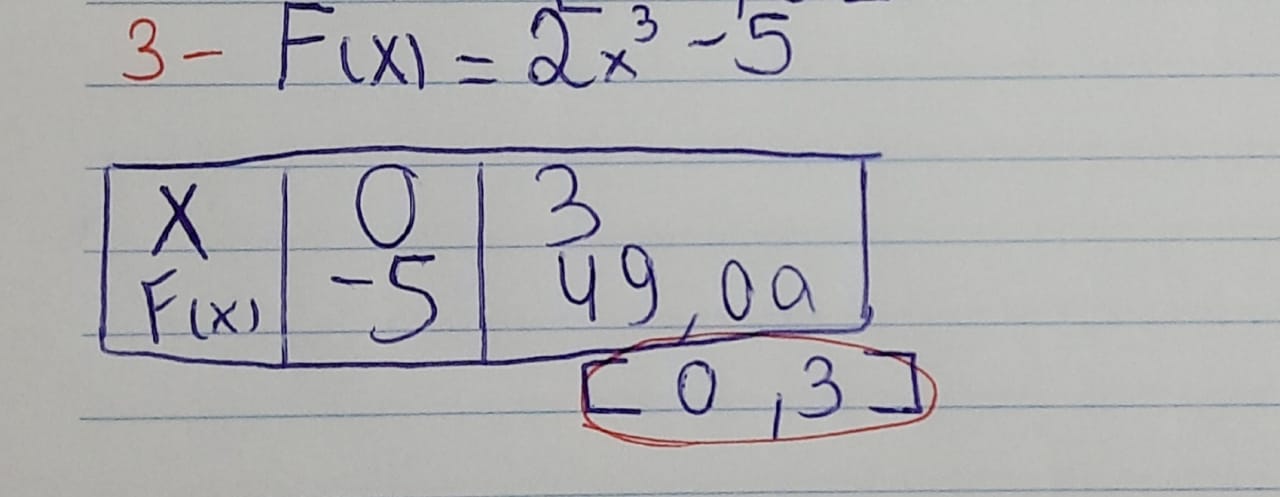 3- F(x) = 2x³ - 5
X 0 3
F(x) -5 49,00
[ 0 , 3 ]